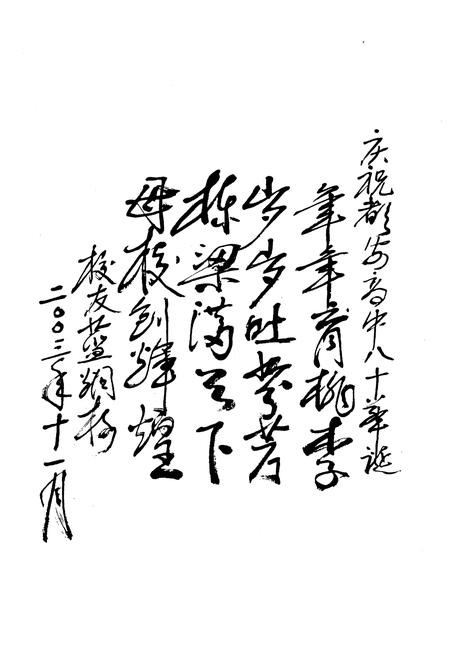 庆祝都安高中八十华诞
年年育桃李
岁岁吐芬芳
栋梁满天下
母校创辉煌
校友蓝
二〇〇三年十一月